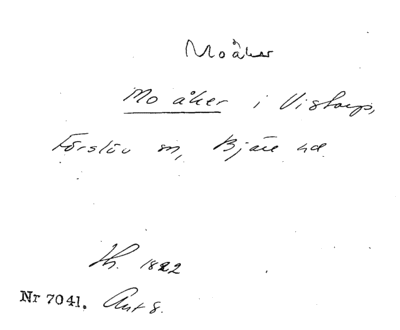 Moåker
Mo åker i Vistorp,
Förslöv sn, Bjäre hd
Sh. 1822
Nr 7041. Ant 8.